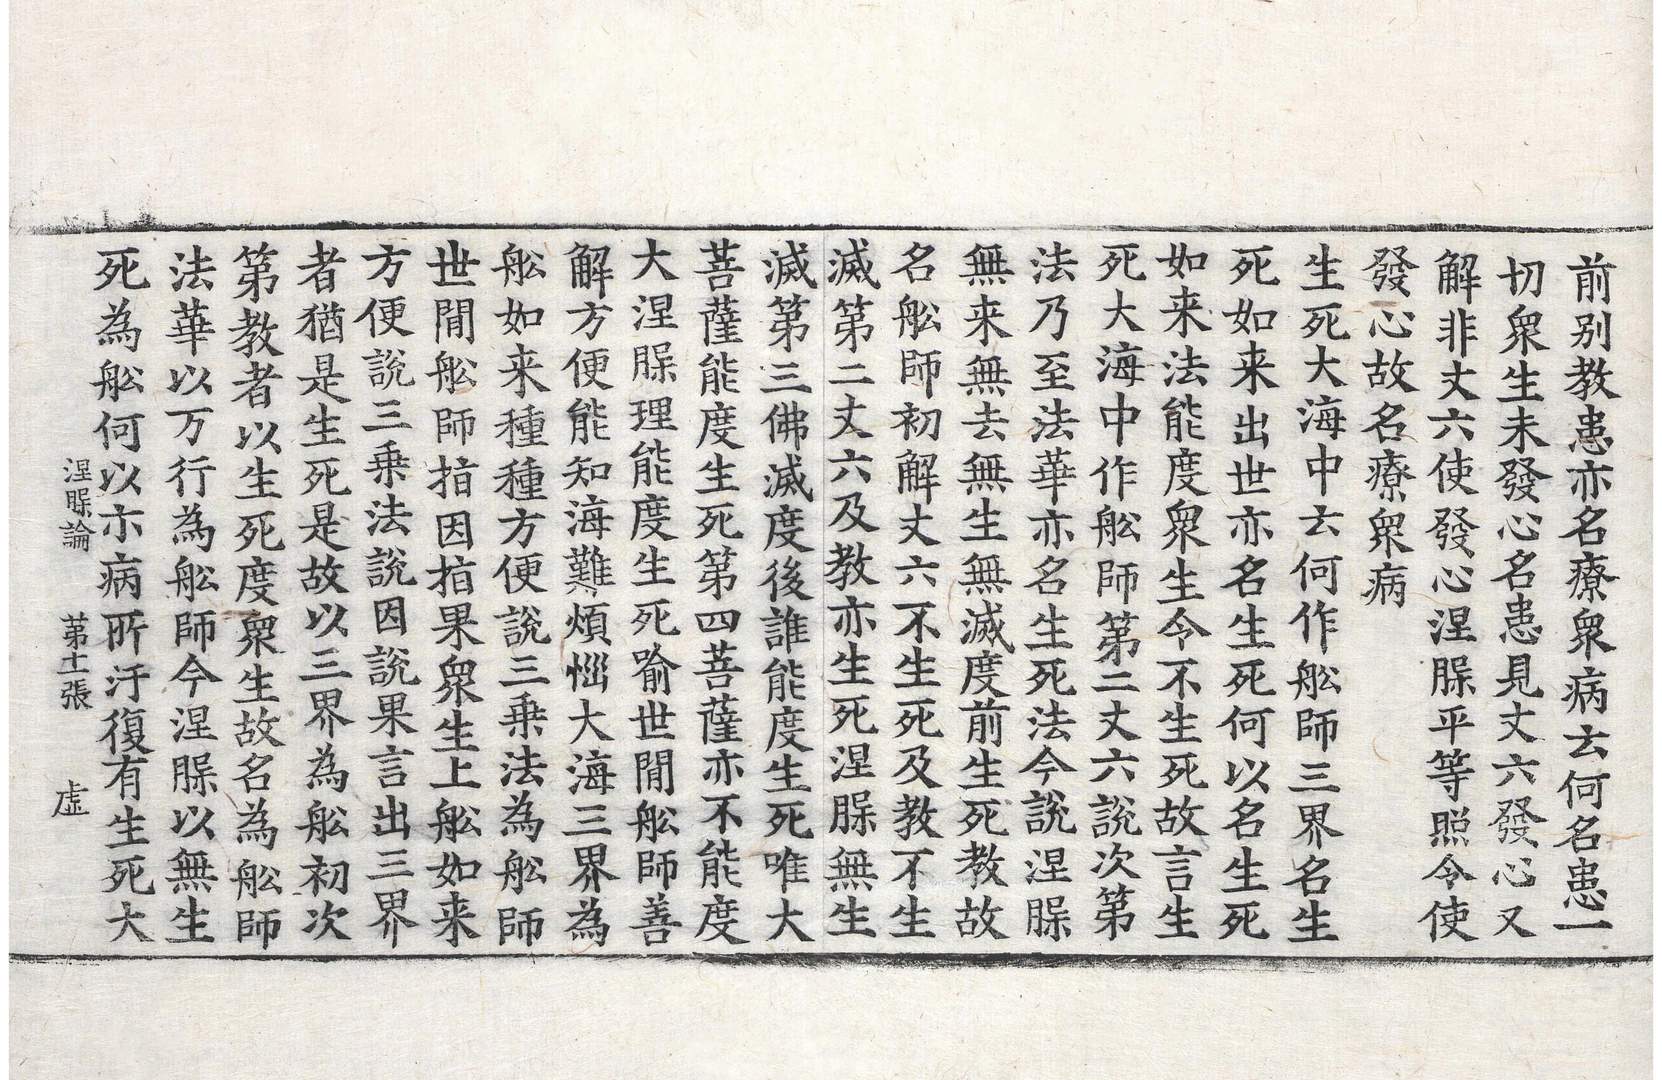 前別教患亦名療衆病云何名患一
切衆生未發心名患見丈六發心又
解非丈六使發心涅槃平等照令使
發心故名療衆病
生死大海中云何作舩師三界名生
死如来出世亦名生死何以名生死
如来法能度衆生令不生死故言生
死大海中作舩師第二丈六說次第
法乃至法華亦名生死法今說涅槃
無来無去無生無滅度前生死教故
名舩師初解丈六不生死及教不生
滅第二丈六及教亦生死涅槃無生
滅第三佛滅度後誰能度生死唯大
菩薩能度生死第四菩薩亦不能度
大涅槃理能度生死喻世間舩師善
解方便能知海難煩惱大海三界為
舩如来種種方便說三乗法為舩師
世間舩師指因指果衆生上舩如来
方便說三乗法說因說果言出三界
者猶是生死是故以三界為舩初次
第教者以生死度衆生故名為舩師
法華以万行為舩師今涅槃以無生
死為舩何以亦病所汙復有生死大
涅槃論　第十一張　虛